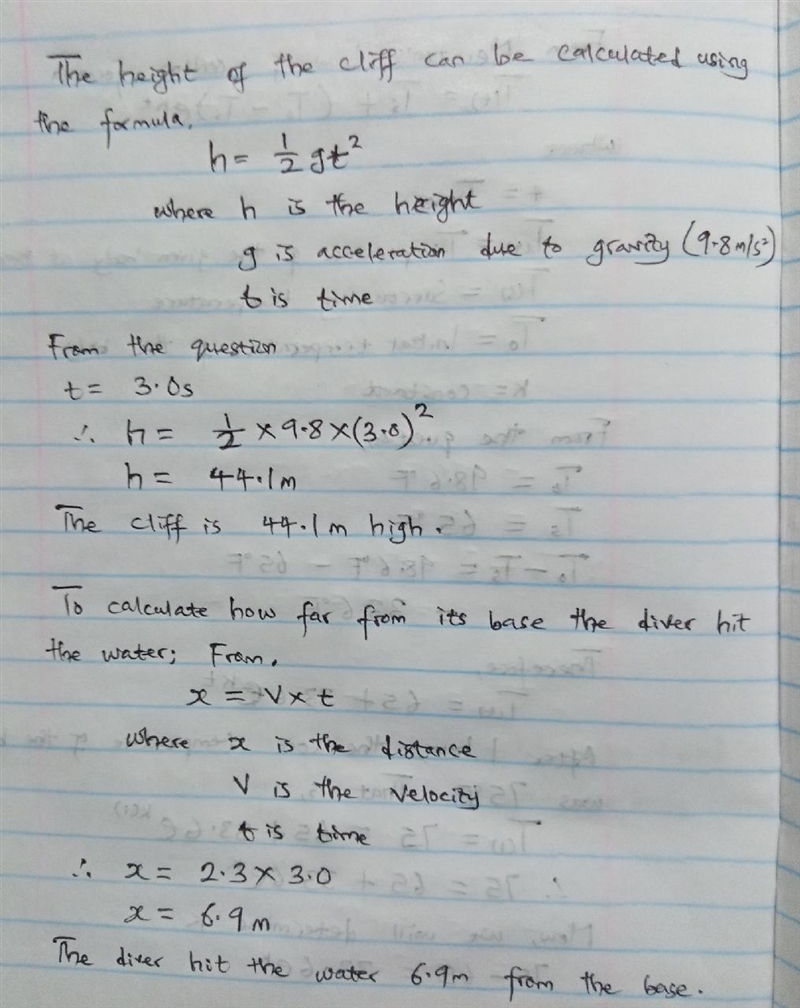 The height of the cliff can be calculated using
the formula,
h = 1/2 gt²
where h is the height
g is acceleration due to gravity (9.8 m/s²)
t is time
From the question
t = 3.0s
∴ h = 1/2 × 9.8 × (3.0)²
h = 44.1m
The cliff is 44.1m high.
To calculate how far from its base the diver hit
the water; From,
x = V × t
where x is the distance
V is the velocity
t is time
∴ x = 2.3 × 3.0
x = 6.9m
The diver hit the water 6.9m from the base.